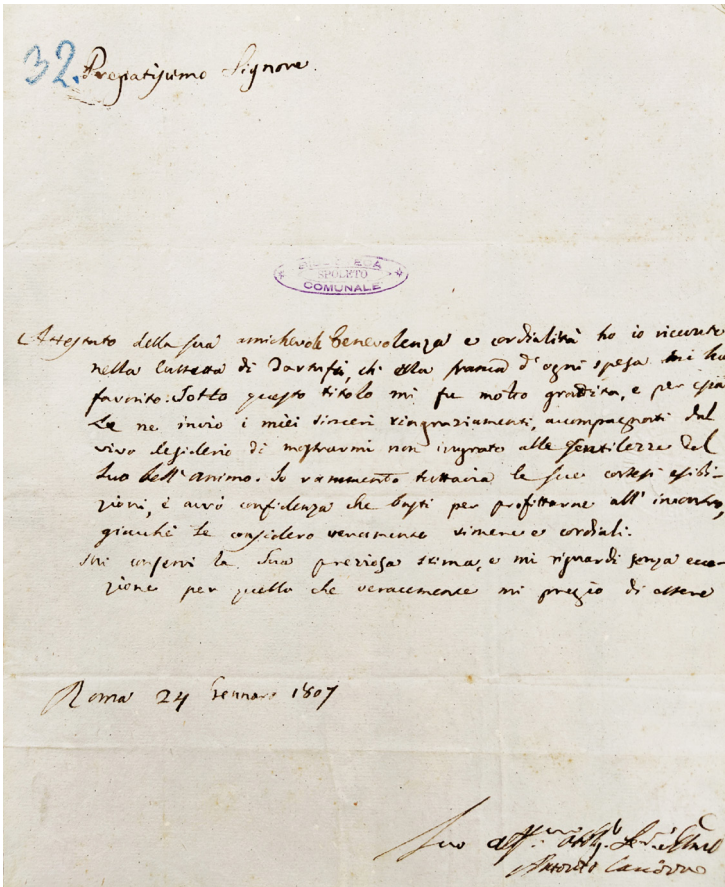 32.
Pregiatissimo Signore.
BIBLIOTECA
SPOLETO
COMUNALE
Attestato della sua amichevole benevolenza e cordialità ho io ricevuto
nella Cassetta di Tartufi, ch'ella franca d'ogni spesa mi ha
favorito. Sotto questo titolo mi fu molto gradita, e per essa
Le ne invio i miei sinceri ringraziamenti, accompagnati dal
vivo desiderio di mostrarmi non ingrato alle gentilezze del
suo bell'animo. Io rammento tuttavia le sue cortesi esibi-
zioni, e avrò confidenza che basti per profittarne all'incontro,
giacchè le considero veramente sincere e cordiali.
Mi conservi la sua preziosa stima, e mi riguardi senza ecce-
zione per quello che veracemente mi pregio di essere
Roma 24 Gennaro 1807
Suo
Antonio Canova